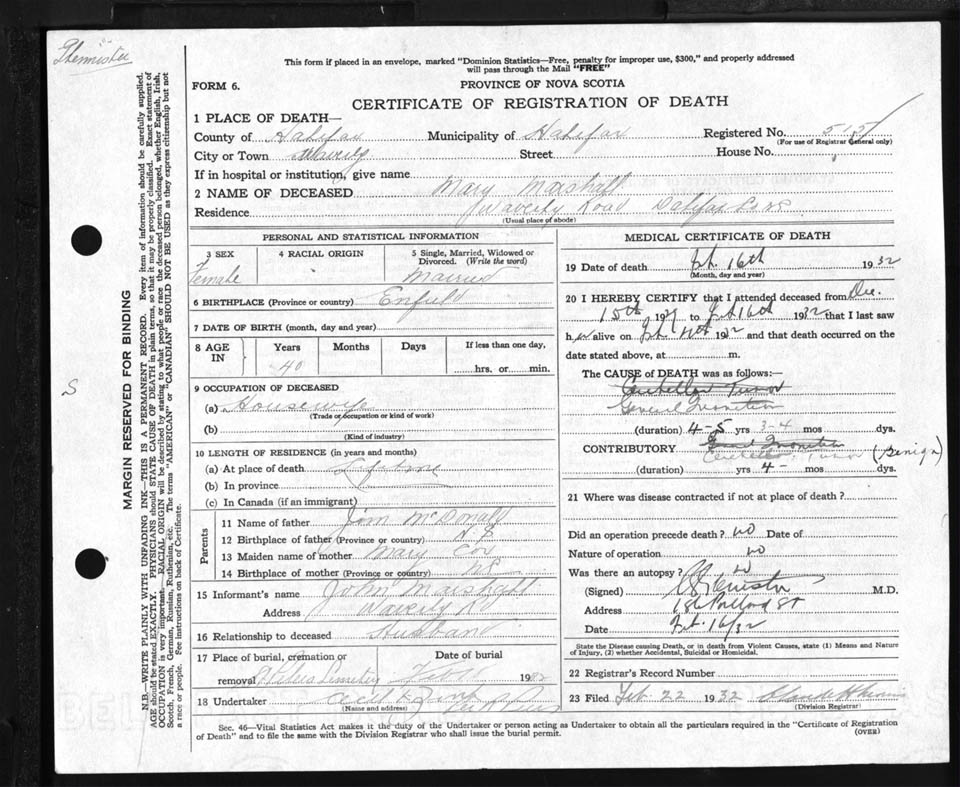 This form if placed in an envelope, marked "Dominion Statistics—Free, penalty for improper use, $300," and properly addressed
will pass through the Mail "FREE"
FORM 6.
PROVINCE OF NOVA SCOTIA
CERTIFICATE OF REGISTRATION OF DEATH
1 PLACE OF DEATH—
County of Halifax Municipality of Halifax Registered No.
(For use of Registrar General only)
City or Town Waverly Street House No.
If in hospital or institution, give name
2 NAME OF DECEASED Mary Marshall
Residence Waverly Road Halifax
(Usual place of abode)
PERSONAL AND STATISTICAL INFORMATION
3 SEX Female
4 RACIAL ORIGIN
5 Single, Married, Widowed or Divorced. (Write the word) Married
6 BIRTHPLACE (Province or country) Enfield
7 DATE OF BIRTH (month, day and year)
8 AGE IN Years Months Days If less than one day,
40 hrs. or min.
9 OCCUPATION OF DECEASED
(a) Housewife
(Trade or occupation or kind of work)
(b)
(Kind of industry)
10 LENGTH OF RESIDENCE (in years and months)
(a) At place of death Lifetime
(b) In province
(c) In Canada (if an immigrant)
Parents
11 Name of father John McDonald
12 Birthplace of father (Province or country) N.S.
13 Maiden name of mother Mary Cox
14 Birthplace of mother (Province or country) N.S.
15 Informant's name John Marshall
Address Waverly Rd
16 Relationship to deceased Husband
17 Place of burial, cremation or Date of burial
removal Cemetery 1932
18 Undertaker Cecil E.
(Name and address)
MEDICAL CERTIFICATE OF DEATH
19 Date of death Feb. 16th 1932
(Month, day and year)
20 I HEREBY CERTIFY that I attended deceased from Dec.
15th to Feb 16th 1932 that I last saw
her alive on Feb 1932 and that death occurred on
date stated above, at m.
The CAUSE of DEATH was as follows:—
Cerebellar Tumor
General Inanition
(duration) 4-5 yrs 3-4 mos dys.
CONTRIBUTORY General Inanition
Cerebellar Tumor (Benign)
(duration) yrs 4- mos dys.
21 Where was disease contracted if not at place of death?
Did an operation precede death? no Date of
Nature of operation no
Was there an autopsy? no
(Signed) M.D.
Address St
Date Feb. 16/32
State the Disease causing Death, or in death from Violent Causes, state (1) Means and Nature
of Injury, (2) whether Accidental, Suicidal or Homicidal.
22 Registrar's Record Number
23 Filed Feb 22 1932
(Division Registrar)
Sec. 46—Vital Statistics Act makes it the duty of the Undertaker or person acting as Undertaker to obtain all the particulars required in the "Certificate of Registration
of Death" and to file the same with the Division Registrar who shall issue the burial permit.
(OVER)
MARGIN RESERVED FOR BINDING
N.B.—WRITE PLAINLY WITH UNFADING INK—THIS IS A PERMANENT RECORD. Every item of information should be carefully supplied.
AGE should be stated EXACTLY. PHYSICIANS should STATE CAUSE OF DEATH in plain terms, so that it may be properly classified. Exact statement of
OCCUPATION is very important. RACIAL ORIGIN will be described by stating to what people or race the deceased person belonged, whether English, Irish,
Scotch, French, German, Russian, Ruthenian, etc. The terms "AMERICAN" or "CANADIAN" SHOULD NOT BE USED as they express citizenship but not
a race or people. See instructions on back of Certificate.
S